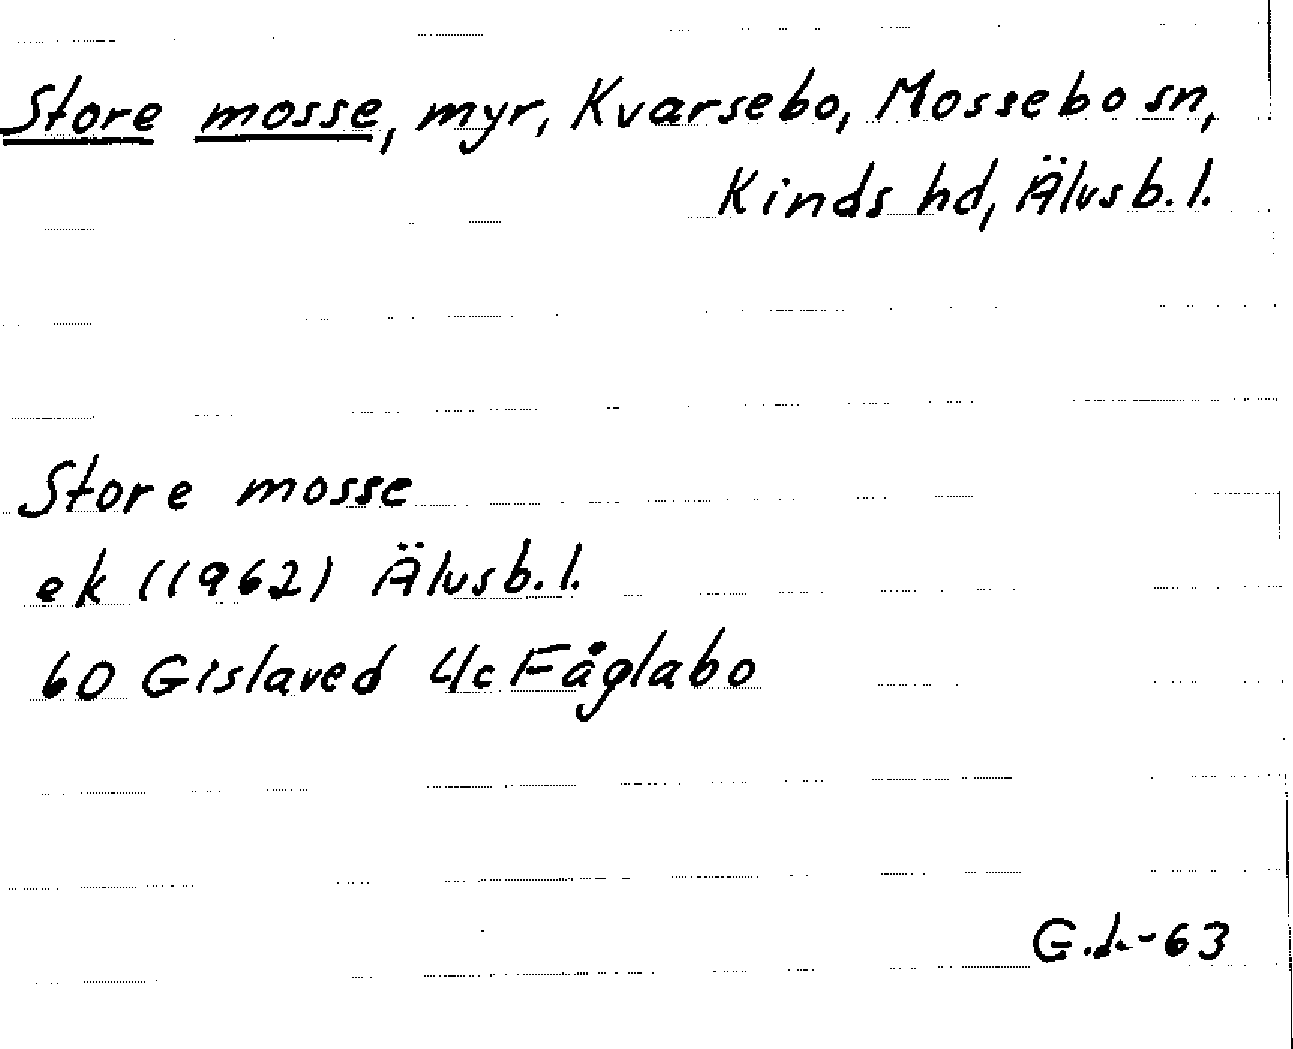 Store mosse, myr, Kvarsebo, Mossebo sn,
Kinds hd, Älvsb. l.
Store mosse
ek (1962) Älvsb. l.
60 Gislaved 4c Fåglabo
-63